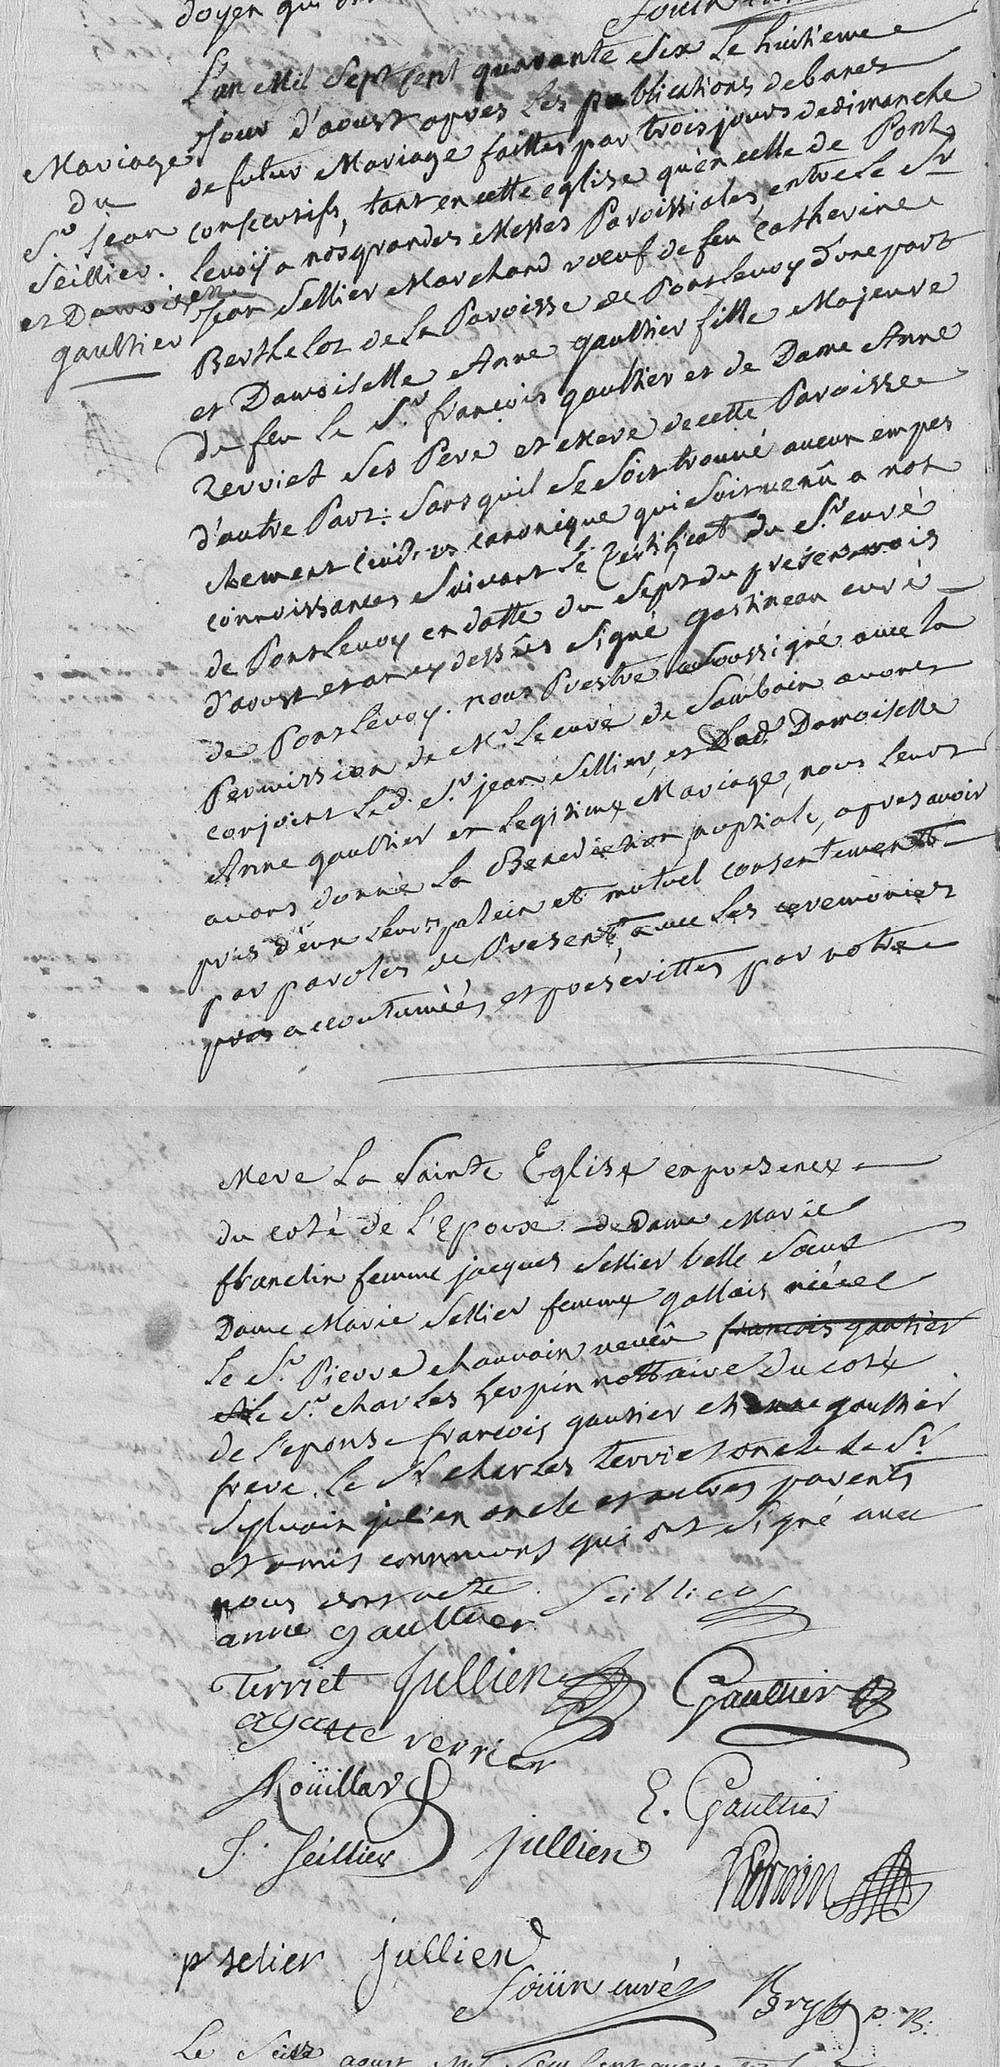 doyen qui
L'an Mil Sept Cent quarante Six Le huitieme
Jour d'aoust apres Les publications de bancs
de futur Mariage faittes par trois jours de dimanche
consecutifs, tant en cette eglise qu'en celle de Pont
levoÿ a nos grandes Messes Paroissiales, entre Le Sr
Jean Sellier Marchand vœuf de feu Catherine
Berthelot de La Paroisse de Pontlevoy d'une part
et Damoiselle Anne gaultier fille Majeure
de feu Le Sr. françois gaultier et de Dame Anne
Terriet Ses Pere et Mere de cette Paroisse
d'autre Part: Sans quil Se Soit trouvé aucun empes
chement Civil ny canonique qui Soit venû a nos
connoissances Suivant Le Certificat du Sr. curé
de Pontlevoy en datte du Sept du present mois
d'aoust et an cy dessûs Signé gastineau curé
de Pontlevoy. nous Prestre Soussigné avec La
Permission de Mr. Le curé de Sambain avons
conjoint Led. Sr. jean Sellier, et Lad. Damoiselle
Anne gaultier en Legitime Mariage, nous leurs
avons donné La Benediction nuptiale, apres avoir
pris d'eux leurs plein et mutuel consentement
par paroles de Present, avec Les ceremonies
accoutumées, et prescrittes par notre
Mariage
du
Sr. Jean
Seillier.
et Damoisen
gaultier
Mere La Sainte Eglise en presence
du coté de L'Epoux de Dame Marie
franclin femme jacques Sellier belle Sœur
Dame Marie Sellier femme gallais niéce
Le Sr. Pierre chauvain neveû françois gautier
Le Sr. charles herpin nottaire du coté
de l'epouse françois gautier et gaultier
frere, Le Sr charles terriet oncle Le Sr
Sylvain julien oncle et autres parents
et amis communs qui ont Signé avec
nous acte
Seillier
anne gaultier
Terriet Jullien Gaultier
agatte
Roüillard
E. Gaultier
J. Seillier jullien
p selier jullien
curé
Le aoust Mil Sept Cent